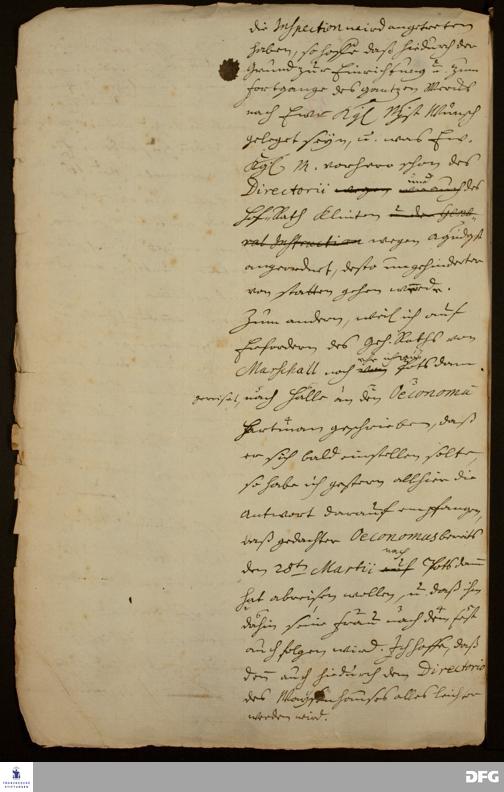 die Inspection wird angetreten
haben, so hoffe daß hiedurch der
Grund zur Einrichtung u. zum
fortgange des gantzen Wercks
nach Ewr Kgl Mjst Wunsch
geleget seyn, u. was Ew.
Kgl M. vorhero schon des
Directorii wegen und des
Hf-Rath Klinten u. der Gene-
ral Instruction wegen
angeordnet, desto ungehinderter
von statten gehen werde.
Zum andern, weil ich auf
Erfordern des Geh. Raths von
Marschall noch Potsdam
gereiset, nach Halle an den Oeconomũ
Hartmann geschrieben, daß
er sich bald einstellen solte,
so habe ich gestern allhier die
Antwort darauf empfangen,
daß gedachter Oeconomus bereits
den 28tn Martii auf nach Potsdam
hat abreisen wollen, u. daß ihm
dahin seine Frau nach dem fest
auch folgen wird. Ich hoffe, daß
den auch hiedurch dem Directorio
des Waysenhauses alles leichter
werden wird.
FRANCKESCHE STIFTUNGEN
DFG